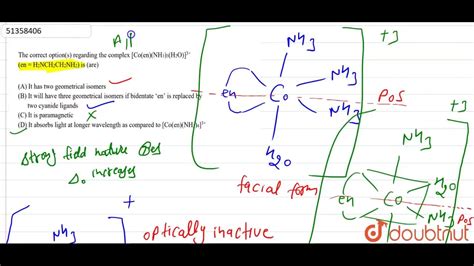 51358406
All
The correct option(s) regarding the complex [Co(en)(NH₃)₃(H₂O)]³⁺
(en = H₂NCH₂CH₂NH₂) is (are)
(A) It has two geometrical isomers
(B) It will have three geometrical isomers if bidentate 'en' is replaced by
two cyanide ligands
(C) It is paramagnetic
(D) It absorbs light at longer wavelength as compared to [Co(en)(NH₃)₄]³⁺
strong field nature
Δ₀ increases
+3
NH3
en
Co
NH3
NH3
H2O
POS
facial form
+
en
Co
H2O
NH3
POS
NH3
optically inactive
doubtnut